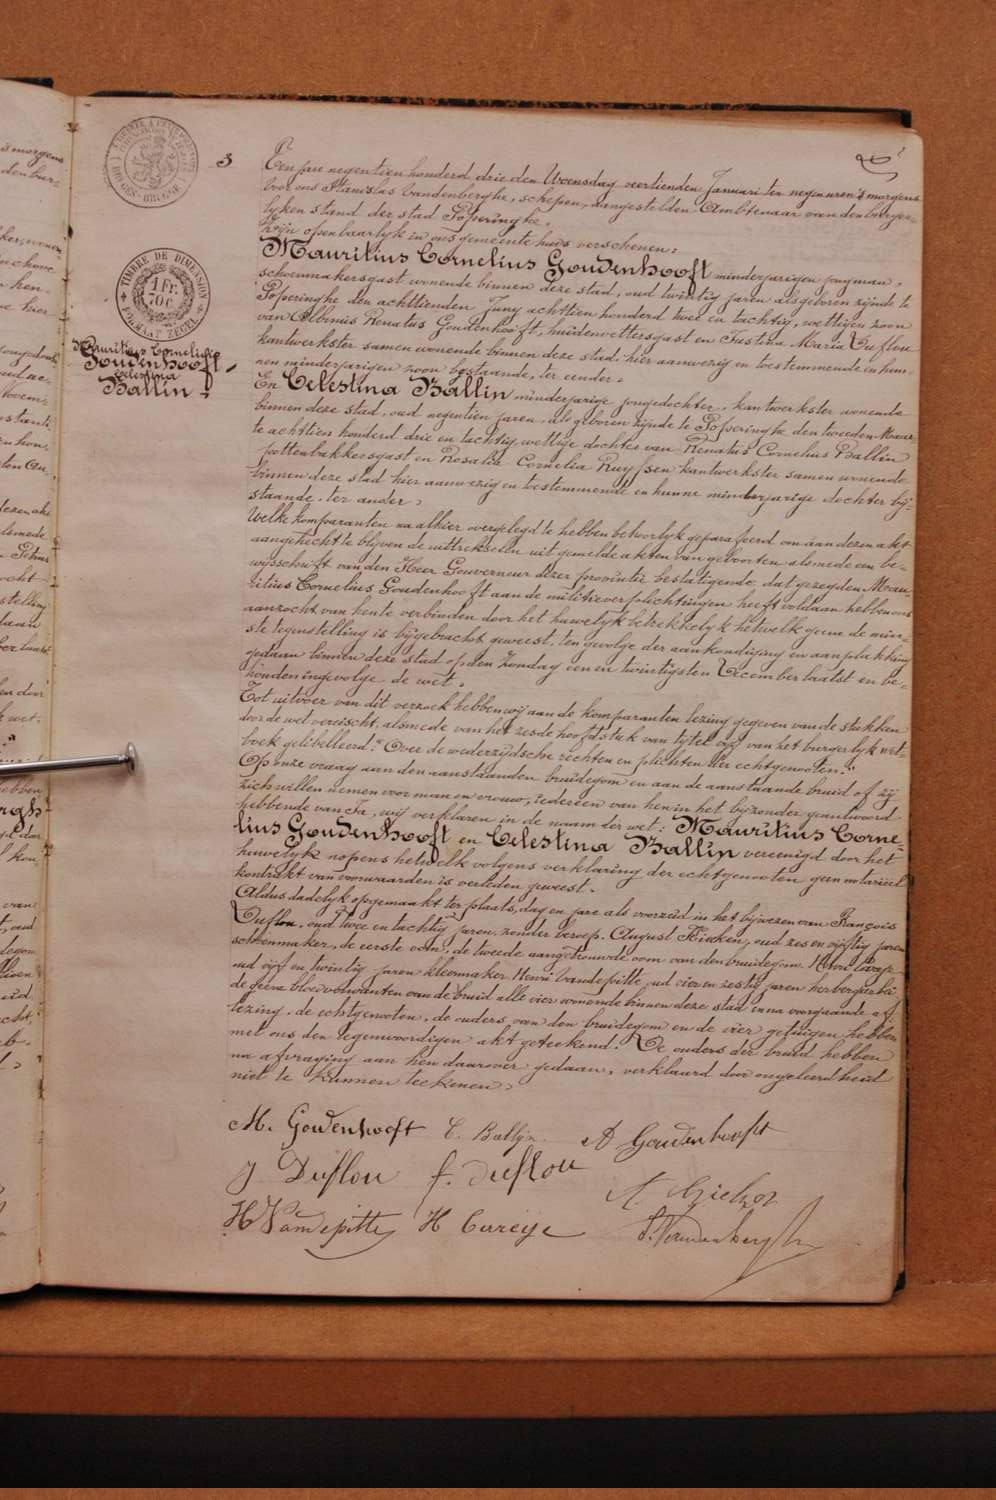 3
Een jare negentien honderd drie den Woensdag veertienden Januari ten negen uren 's morgens
voor ons Stanislas Vandenberghe, schepen, aangestelden Ambtenaar van den burger-
lyken stand der stad Poperinghe.
zyn openbaarlyk in ons gemeente huis verschenen:
Mauritius Cornelius Goudenhooft minderjarigen jongman,
schoenmakersgast wonende binnen deze stad, oud twintig jaren als geboren zijnde te
Poperinghe den achttienden Juny achttien honderd twee en tachtig, wettigen zoon
van Albinus Renatus Goudenhooft, huidenvettersgast en Justina Maria Duflou
kantwerkster samen wonende binnen deze stad hier aanwezig en toestemmende in hun-
nen minderjarigen zoon bystaande, ter eender.
En Celestina Ballin minderjarige jongedochter, kantwerkster wonende
binnen deze stad, oud negentien jaren, als geboren zijnde te Poperinghe den tweeden Maart
te achttien honderd drie en tachtig, wettige dochter van Renatus Cornelius Ballin
pottenbakkersgast en Rosalia Cornelia Ruyssen kantwerkster samen wonende
binnen deze stad hier aanwezig en toestemmende en hunne minderjarige dochter bij-
staande, ter ander.
Welke komparanten na alhier overgelegd te hebben behoorlyk geparafeerd om aan dezen akt
aangehecht te blyven de uittrekselen uit gemelde akten van geboorten alsmede een be-
wysschrift van den Heer Gouverneur dezer provintie bestatigende dat gezegden Mau-
ritius Cornelius Goudenhooft aan de militieverplichtingen heeft voldaan hebben ons
aanzocht van hente verbinden door het huwelyk betrekkelyk hetwelk geene de min-
ste tegenstelling is bijgebracht geweest, ten gevolge der aankondiging en aanplakking
gedaan binnen deze stad op den Zondag een en twintigsten December laatst en be-
houden ingevolge de wet.
Tot uitvoer van dit verzoek hebben wij aan de komparanten lezing gegeven van de stukken
door de wet vereischt, alsmede van het zesde hoofdstuk van tytel vyf van het burgerlyk wet-
boek gelibelleerd: "Over de wederzydsche rechten en plichten der echtgenooten."
Op onze vraag aan den aanstaanden bruidegom en aan de aanstaande bruid of zij
zich willen nemen voor man en vrouw, iedereen van hen in het byzonder geantwoord
hebbende van Ja, wij verklaren in de naam der wet: Mauritius Corne-
lius Goudenhooft en Celestina Ballin vereenigd door het
huwelyk nopens hetwelk volgens verklaring der echtgenooten geen notariëel
kontrakt van voorwaarden is verleden geweest.
Aldus dadelyk opgemaakt ter plaats, dag en jare als voorzeid in het bijwezen van François
Duflou, oud twee en tachtig jaren, zonder beroep, August Kieken, oud zes en vijftig jaren
schoenmaker, de eerste oom, de tweede aangetrouwde oom van den bruidegom, Henri
oud vijf en twintig jaren kleermaker, Henri Vandepitte oud vier en zestig jaren herbergier bei-
de geene bloedverwanten van de bruid alle vier wonende binnen deze stad en na voorgaande af-
lezing, de echtgenooten, de ouders van den bruidegom en de vier getuigen, hebben
met ons den tegenwoordigen akt geteekend. De ouders der bruid hebben
na afvraging aan hen daarover gedaan, verklaard door ongeleerdheid
niet te kunnen teekenen.
M. Goudenhooft C. Ballyn A Goudenhooft
J Duflou f. duflou
H Vandepitte H S. Vandenberghe
TIMBRE DE DIMENSION
1 FR.
70 C
FORMAAT ZEGEL
Mauritius Cornelius
Goudenhooft,
Celestina
Ballin.